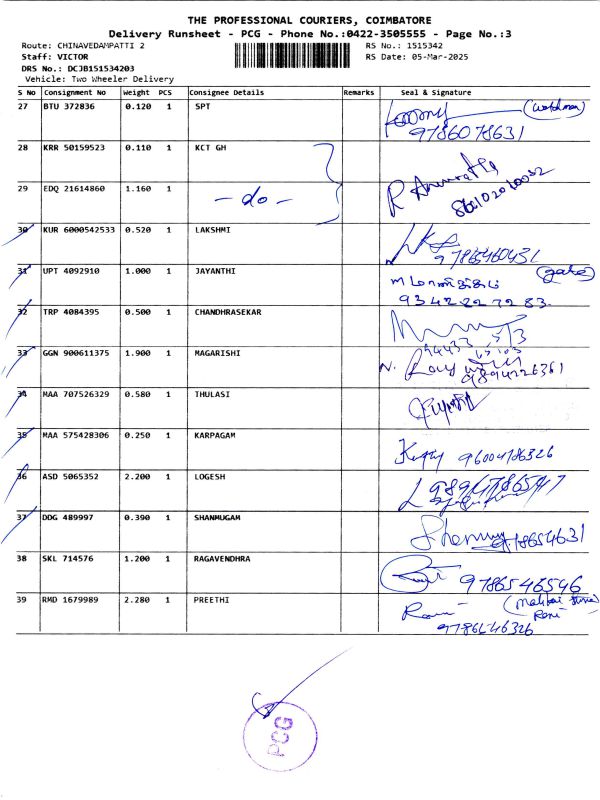 THE PROFESSIONAL COURIERS, COIMBATORE
Delivery Runsheet - PCG - Phone No.:0422-3505555 - Page No.:3
Route: CHINAVEDAMPATTI 2 RS No.: 1515342
Staff: VICTOR RS Date: 05-Mar-2025
DRS No.: DCJB151534203
Vehicle: Two Wheeler Delivery
S No Consignment No Weight PCS Consignee Details Remarks Seal & Signature
27 BTU 372836 0.120 1 SPT (watchman)
9786078631
28 KRR 50159523 0.110 1 KCT GH
29 EDQ 21614860 1.160 1 - do - R
30 KUR 6000542533 0.520 1 LAKSHMI
97865460431
31 UPT 4092910 1.000 1 JAYANTHI (gate)
93422 27283
32 TRP 4084395 0.500 1 CHANDHRASEKAR
33 GGN 900611375 1.900 1 MAGARISHI N.
9894226361
34 MAA 707526329 0.580 1 THULASI
35 MAA 575428306 0.250 1 KARPAGAM
96004786326
36 ASD 5065352 2.200 1 LOGESH
37 DDG 489997 0.390 1 SHANMUGAM
38 SKL 714576 1.200 1 RAGAVENDHRA
9786546546
39 RMD 1679989 2.280 1 PREETHI
PCG